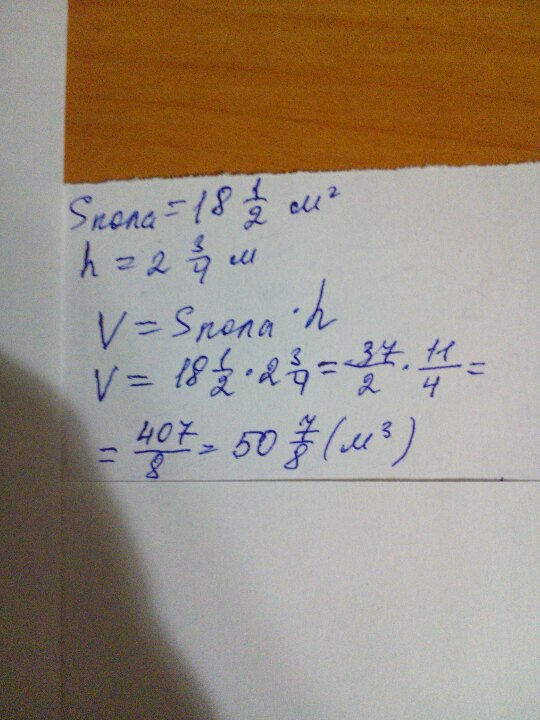 Sпола = 18 1/2 м²
h = 2 3/4 м
V = Sпола · h
V = 18 1/2 · 2 3/4 = 37/2 · 11/4 =
= 407/8 = 50 7/8 (м³)